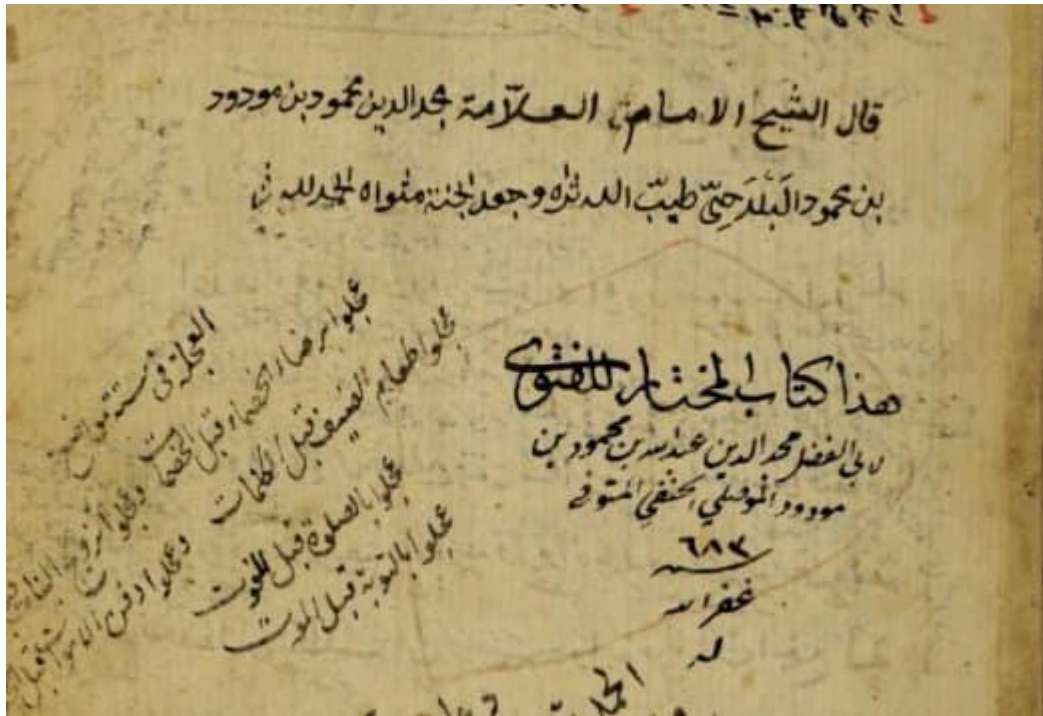 قال الشيخ الامام العلّامة مجد الدين محمود بن مودود
بن محمود البَلْدَحِيّ طيبّ الله ثراه وجعل الجنة مثواه الحمد لله
هذا كتاب المختار للفتوى
لابي الفضل مجد الدين عبد الله بن محمود بن
مودود الموصلي الحنفي المتوفى
٦٨٣ سنه
غفر الله
له
العجلة في ستة مواضع
عجلوا برضاء الخصماء قبل
عجلوا طعام الضيف قبل الكلمات
عجلوا بالصلوة قبل الفوت
عجلوا بالتوبة قبل الموت
وعجلوا
وعجلوا دفن الاموات